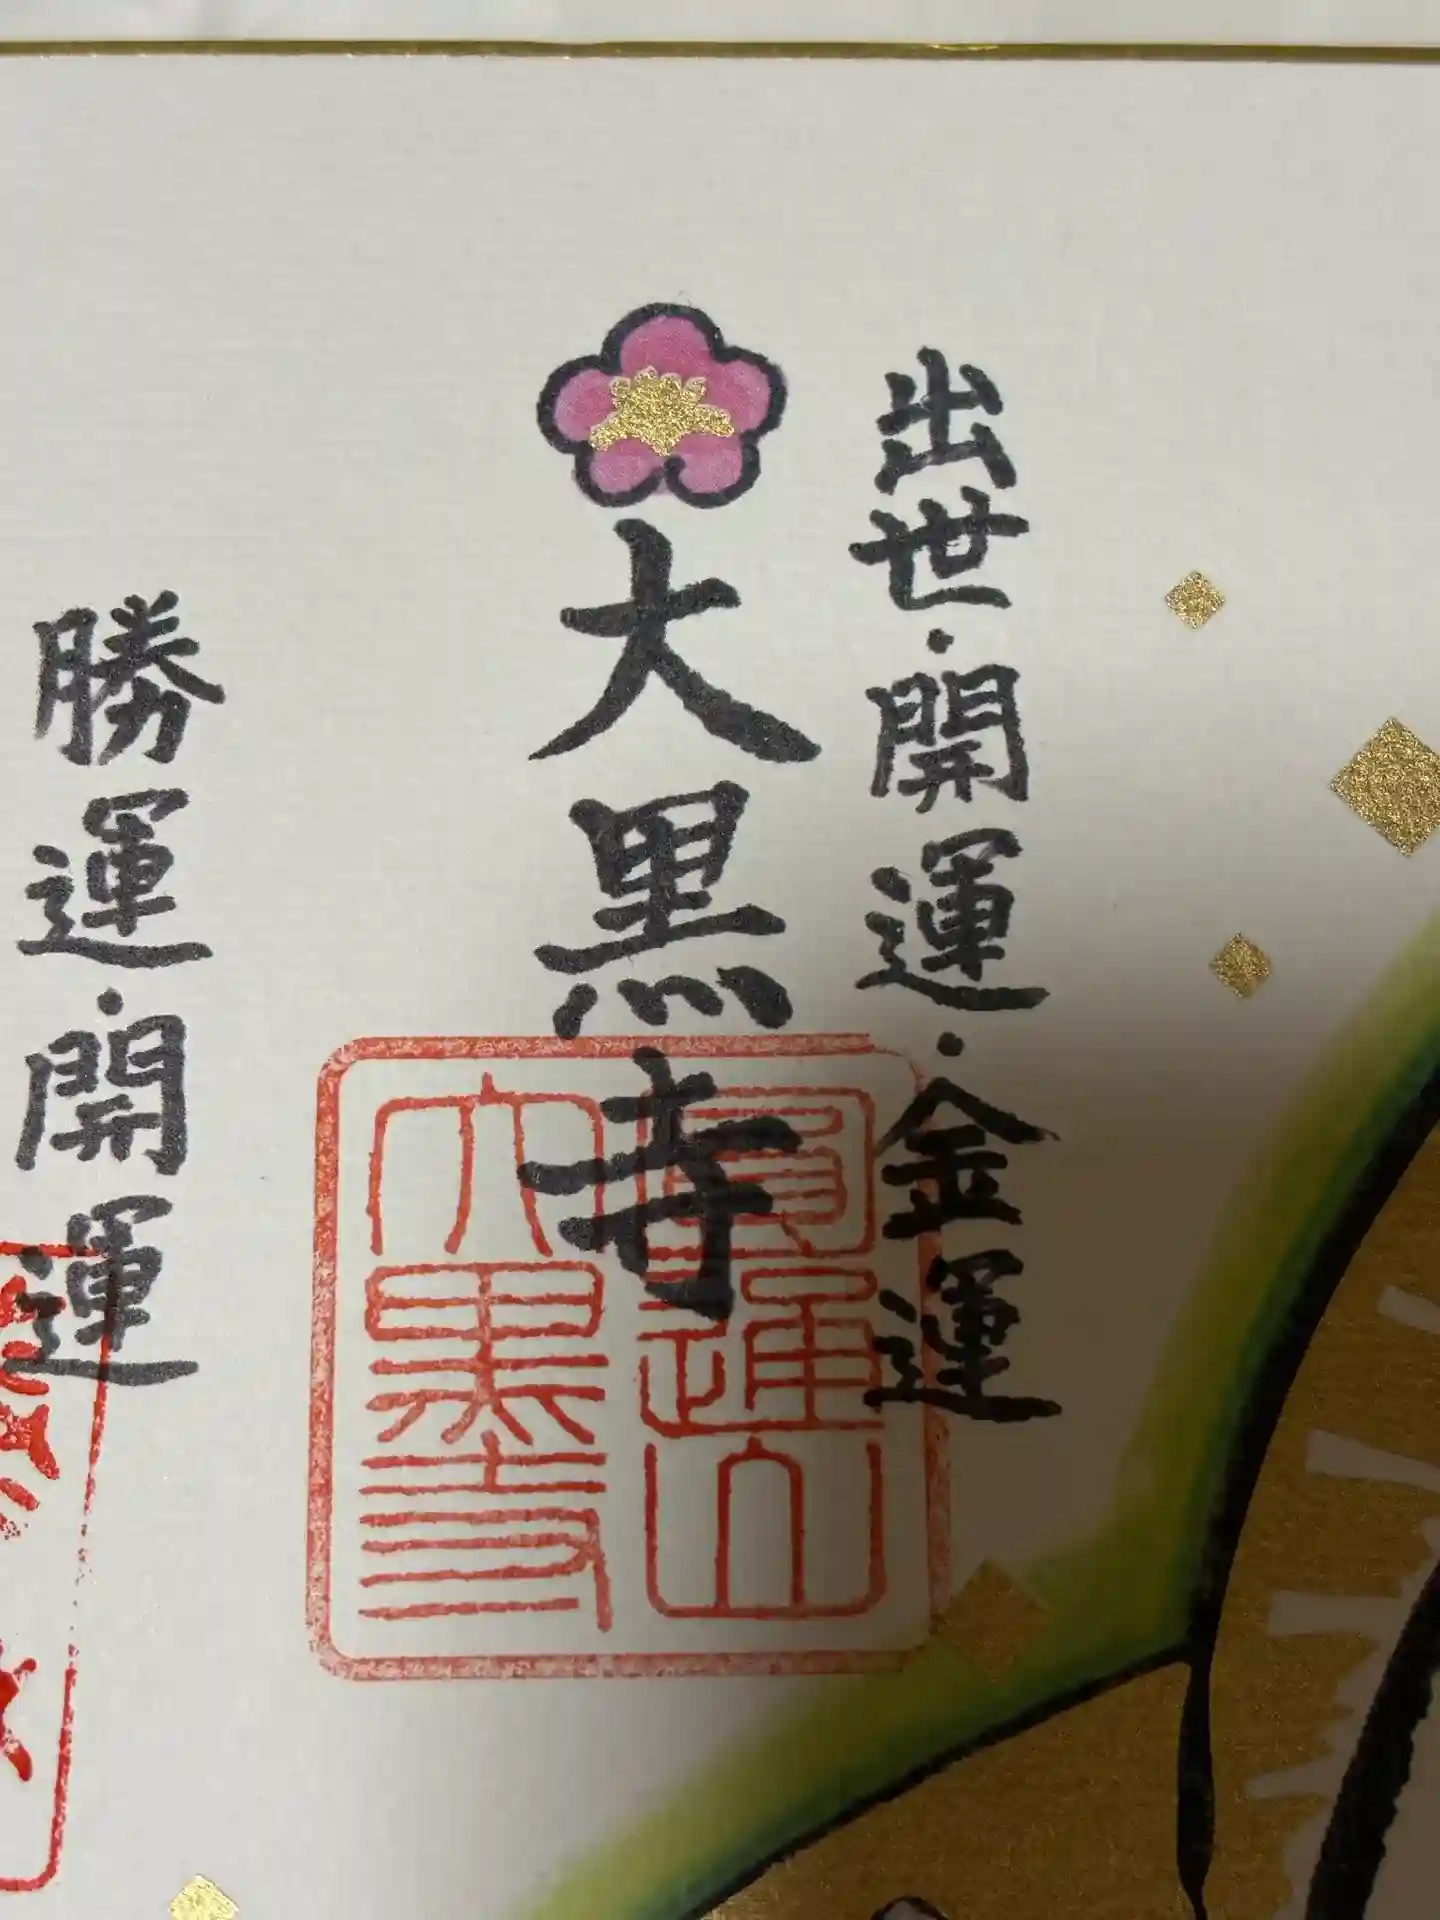 出世・開運・金運
大黒寺
勝運・開運
円通山
大黒寺